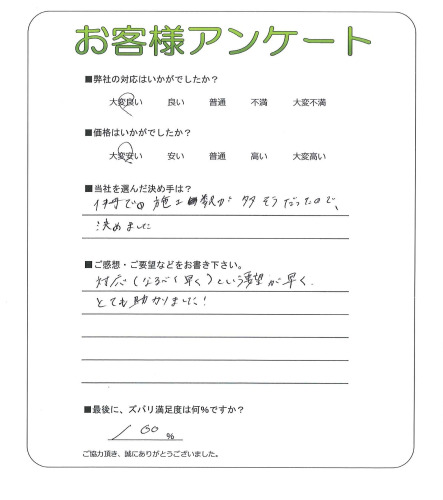 お客様アンケート
■弊社の対応はいかがでしたか?
大変良い 良い 普通 不満 大変不満
■価格はいかがでしたか?
大変安い 安い 普通 高い 大変高い
■当社を選んだ決め手は?
施工 数が 多そうだったので、
決めました
■ご感想・ご要望などをお書き下さい。
対応(なるべく早く)という要望が早く、
とても助かりました!
■最後に、ズバリ満足度は何%ですか?
100 %
ご協力頂き、誠にありがとうございました。